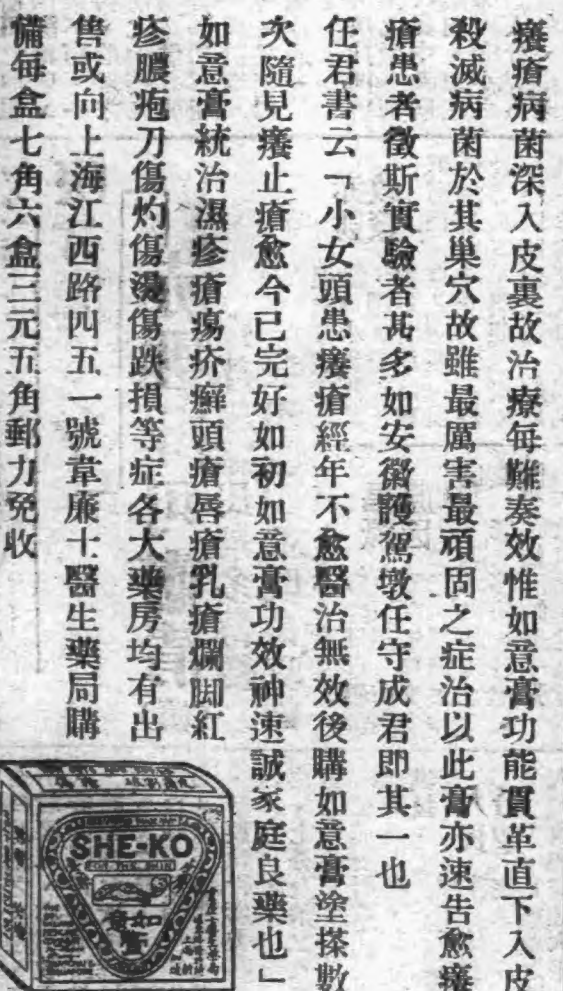 癢瘡病菌深入皮裏故治療每難奏效惟如意膏功能貫革直下入皮
殺滅病菌於其巢穴故雖最厲害最頑固之症治以此膏亦速告愈癢
瘡患者徵斯實驗者甚多如安徽護駕墩任守成君即其一也
任君書云「小女頭患癢瘡經年不愈醫治無效後購如意膏塗搽數
次隨見癢止瘡愈今已完好如初如意膏功效神速誠家庭良藥也」
如意膏統治濕疹瘡瘍疥癬頭瘡唇瘡乳瘡爛脚紅
疹膿疱刀傷灼傷燙傷跌損等症各大藥房均有出
售或向上海江西路四五一號韋廉士醫生藥局購
備每盒七角六盒三元五角郵力免收
SHE-KO
如意膏